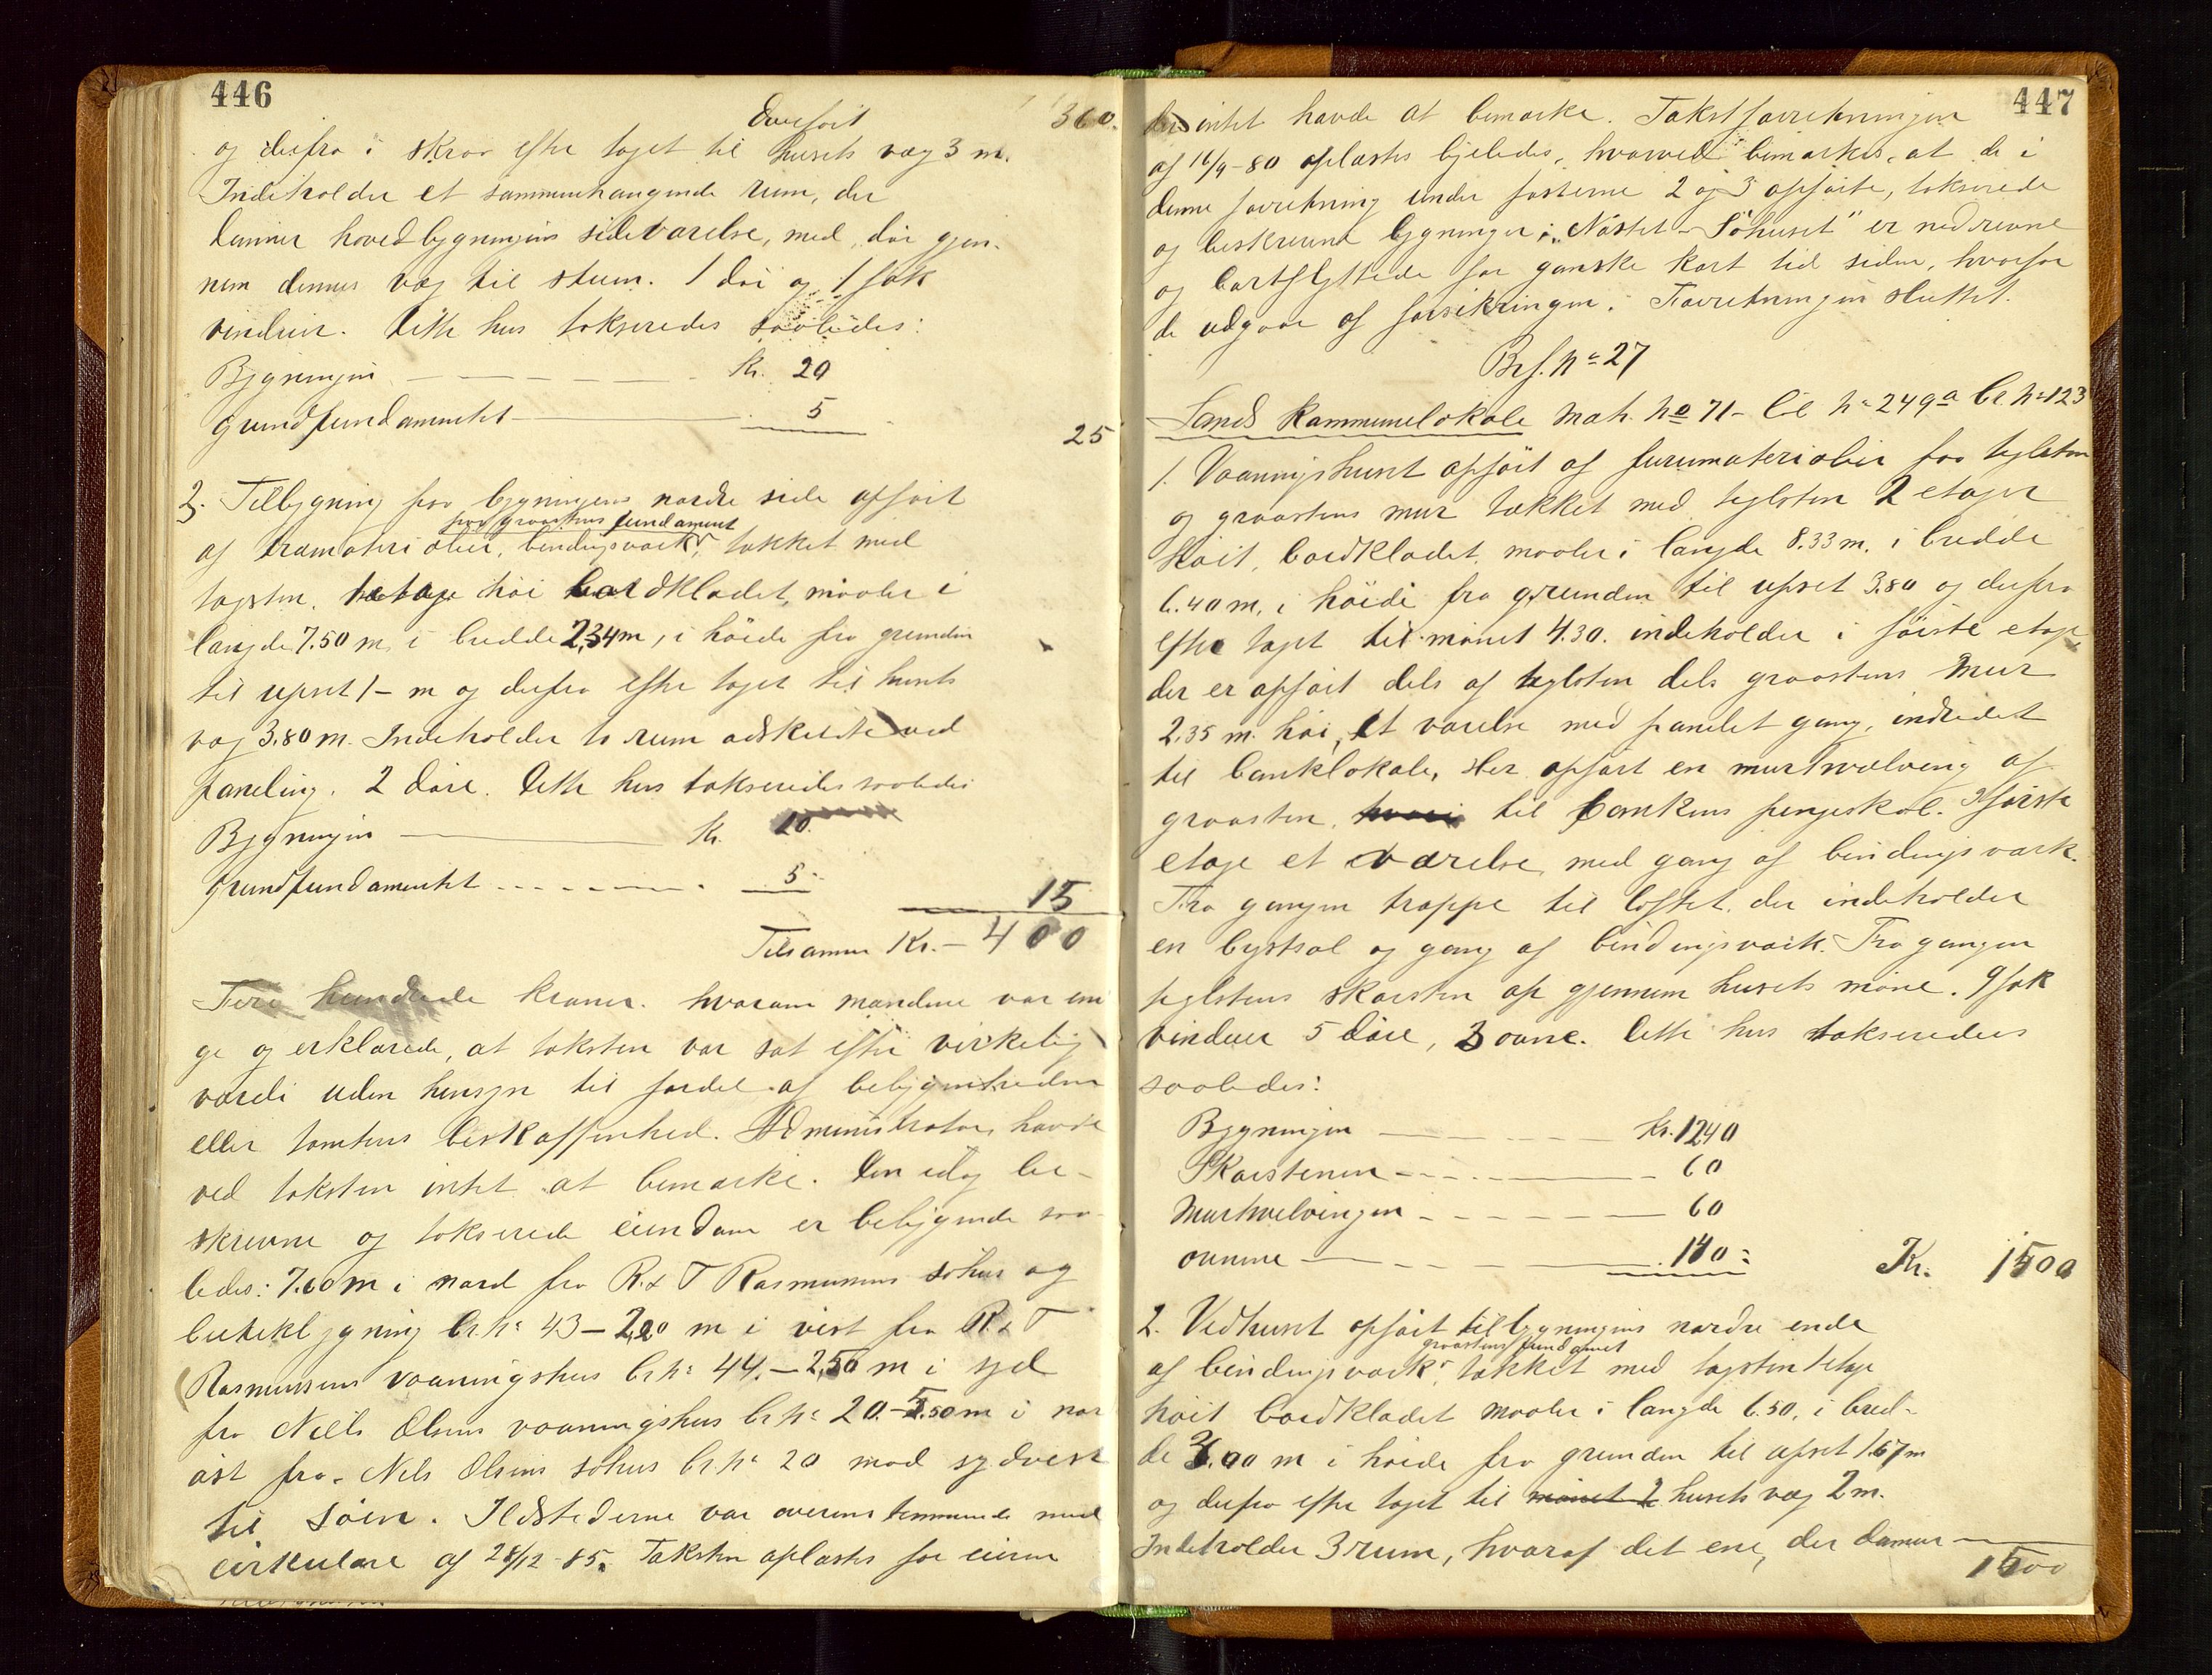 446
Overført 360.
og derfra i skraa efter taget til husets væg 3 m.
Indeholder et sammenhængende rum, der
danner hovedbygningens sideværelse, med dør gjen-
nem dennes væg til stuen. 1 dør og 1 fak
vinduer. Dette hus takseredes saaledes:
Bygningen Kr. 20
Grundfundamentet 5
25
3. Tilbygning paa bygningens nordre side opført
paa graastens fundament
af træmaterialier, bindingsværk, tækket med
tagsten. 1 etage høi bordklædet, maaler i
længde 7.50 m, i bredde 2,34 m, i høide fra grunden
til upset 1- m og derfra efter taget til husets
væg 3.80 m. Indeholder to rum adskildte ved
paneling. 2 døre. Dette hus takseredes saaledes
Bygningen Kr. 10.
Grundfundamentet 5-
15
Tilsammen Kr. - 400
Fire hundrede kroner. hvorom mændene var eni
ge og erklærede, at taksten var sat efter virkelig
værdi uden hensyn til fordel af beliggenheden
eller tomtens beskaffenhed. Administrator havde
ved taksten intet at bemærke. Den idag be-
skrevne og takserede eiendom er beliggende saa-
ledes: 7.60 m i nord fra R. & T Rasmussens søhus og
butikbygning br. nº 43 - 2,20 m i vest fra R & T
Rasmussens vaaningshus br. nº 44. - 2,50 m i syd
fra Niels Olsens vaaningshus br. nº 20. - 5.50 m i nor
øst fra Nils Olsens søhus br. nº 20 mod sydvest
til søen. Ildstederne var overensstemmende med
cirkulære af 28/12-85. Taksten oplæstes for eieren
447
der intet havde at bemærke. Takstforretningen
af 16/9-80 oplæstes ligeledes, hvorved bemærkes, at de i
denne forretning under posterne 2 og 3 opførte, takserede
og beskrevne bygninger i "Nøstet - Søhuset" er nedrevne
og bortflyttede for ganske kort tid siden, hvorfor
de udgaar af forsikringen. Forretningen sluttet.
Brf. nº 27
Sands Kommunelokale Mat. nº 71- Løb nº 249a br. nº 123
1. Vaaningshuset opført af furumaterialier paa teglsten
og graastens mur tækket med teglsten 2 etager
høit, bordklædet, maaler i længde 8.33 m. i bredde
6.40 m, i høide fra grunden til upset 3.80 og derfra
efter taget til mønet 4.30. indeholder i første etage
der er opført dels af teglsten dels graastens mur
2.35 m. høi, et værelse med panelet gang, indredet
til banklokale, Her opført en murhvælving af
graasten, til bankens pengeskab. I første
etage et værelse med gang af bindingsværk.
Fra gangen trappe til loftet, der indeholder
en bystsal og gang af bindingsværk. Fra gangen
teglstens skorsten op gjennem husets møne. 9 fak
vinduer 5 døre, 3 ovne. Dette hus takseredes
saaledes:
Bygningen Kr. 1240
Skorstenen 60
Murhvelvingen 60
ovnene 140 - Kr. 1500
2. Vedhuset opført til bygningens nordre ende
graastens fundament
af bindingsværk, tækket med tagsten 1 etage
høit bordklædet maaler i længde 6.50, i bred-
de 2.00 m i høide fra grunden til upset 1.67 m
og derfra efter taget til mønet 2 husets væg 2 m.
Indeholder 3 rum, hvoraf det ene, der danner
1500